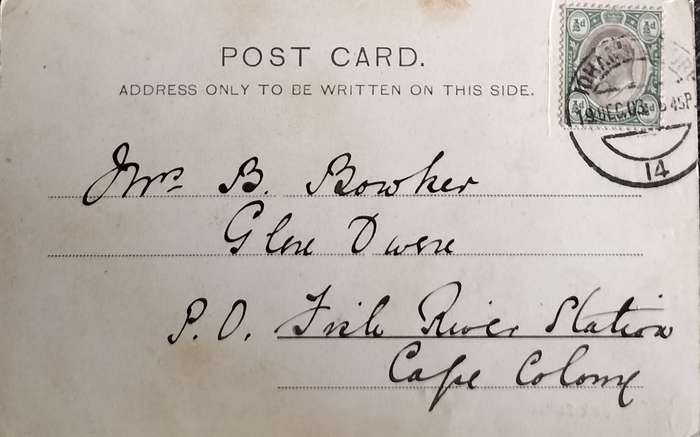 POST CARD.
ADDRESS ONLY TO BE WRITTEN ON THIS SIDE.
½d ½d
JOHAN
19 DEC. 03 45P.
½d
14
Mrs B. Bowker
Glen Owen
P.O. Fish River Station
Cape Colony